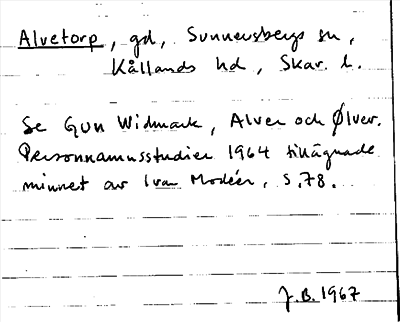 Alvetorp, gd, Sunnersbergs sn,
Kållands hd, Skar. l.
Se Gun Widmark, Alver och Ølver.
Personnamnsstudier 1964 tillägnade
minnet av Ivar Modéer, S. 78.
J.B. 1967